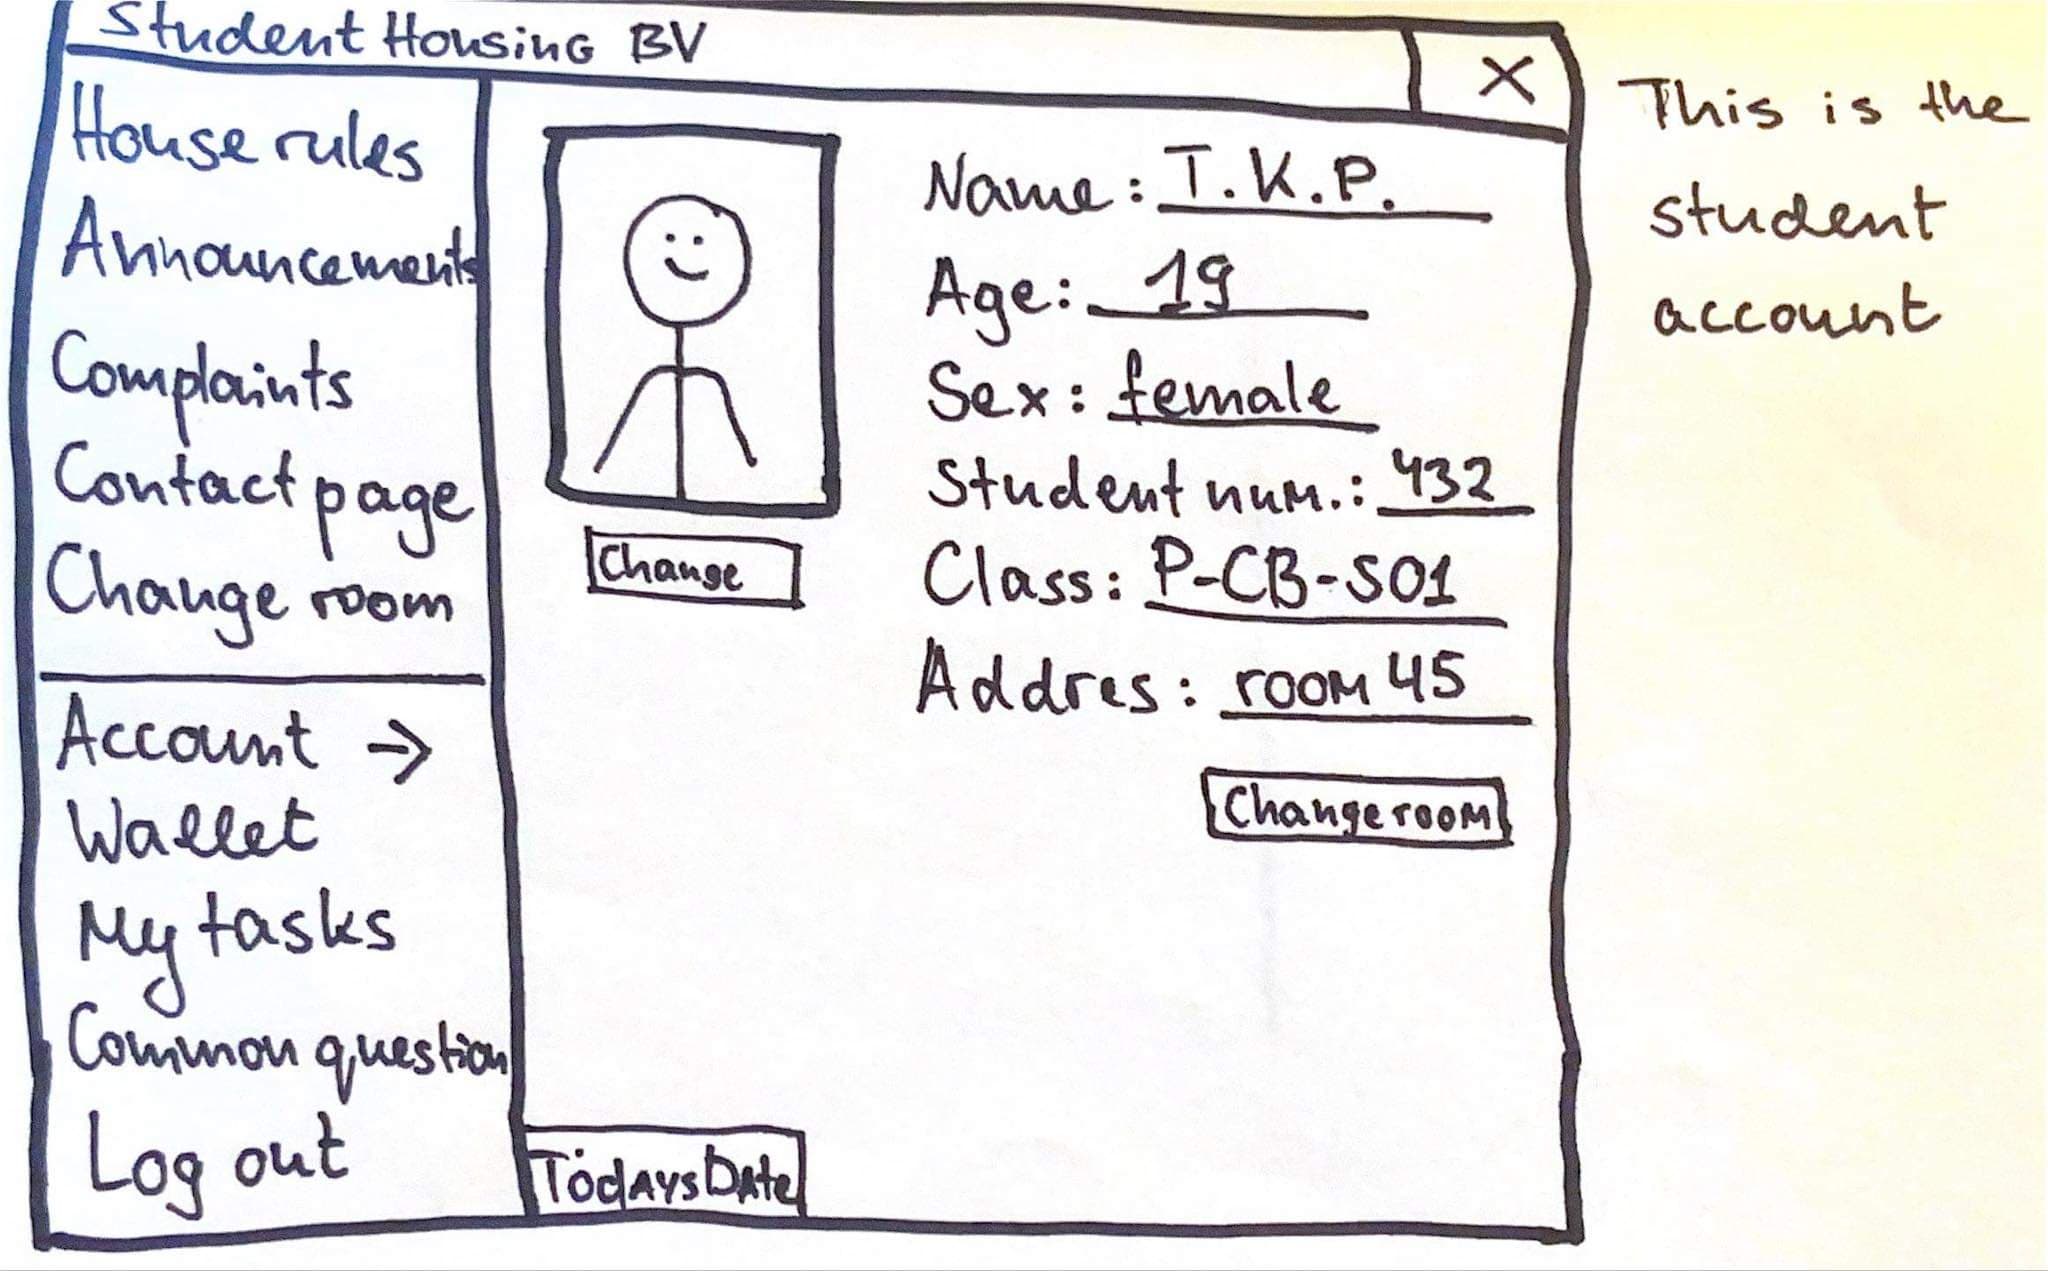 Student Housing BV
X
House rules
Announcements
Complaints
Contact page
Change room
Account →
Wallet
My tasks
Common question
Log out
Change
Name: T.K.P.
Age: 19
Sex: female
Student num.: 432
Class: P-CB-S01
Addres: room 45
Change room
Todays Date
This is the
student
account